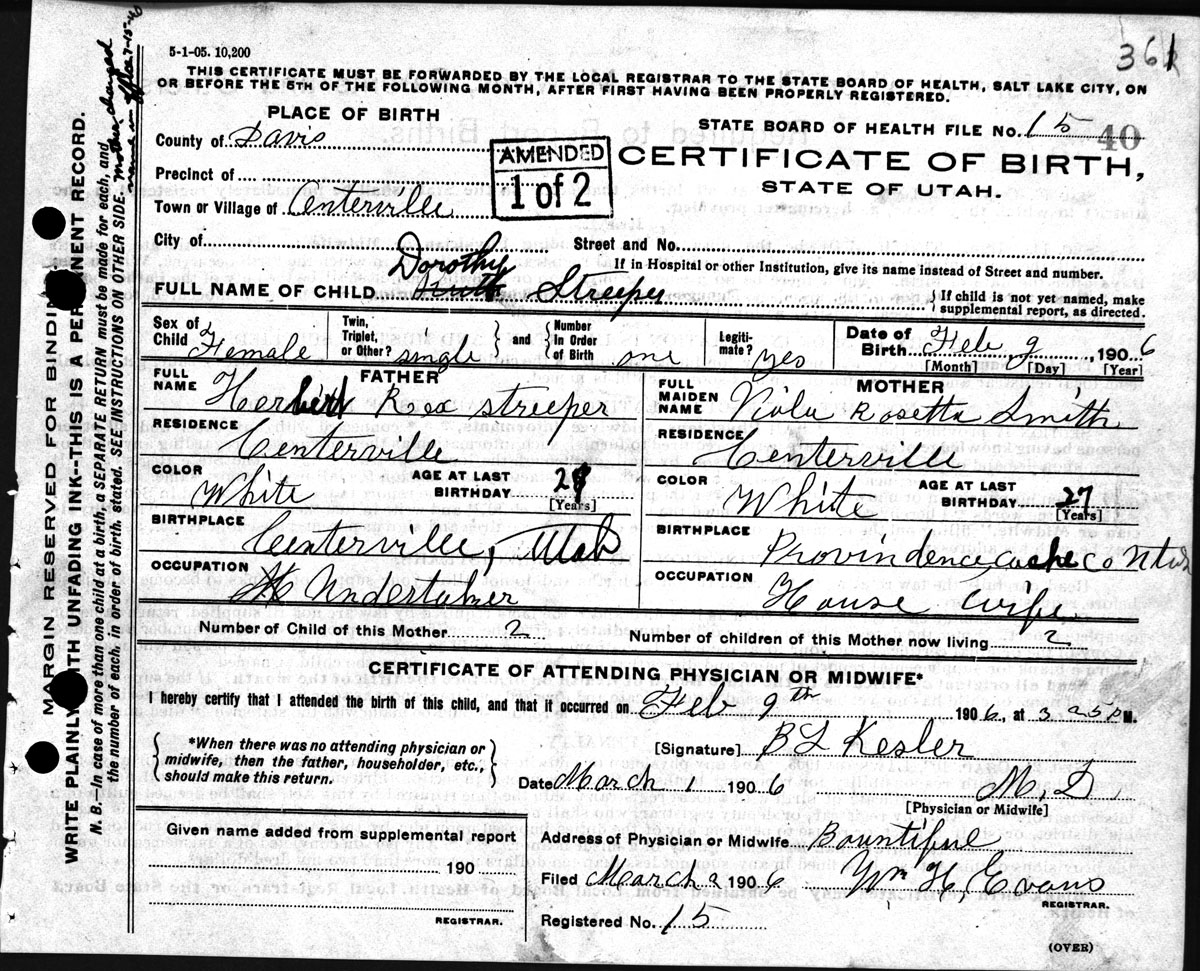 5-1-05. 10,200
361
THIS CERTIFICATE MUST BE FORWARDED BY THE LOCAL REGISTRAR TO THE STATE BOARD OF HEALTH, SALT LAKE CITY, ON
OR BEFORE THE 5TH OF THE FOLLOWING MONTH, AFTER FIRST HAVING BEEN PROPERLY REGISTERED.
PLACE OF BIRTH
STATE BOARD OF HEALTH FILE No. 15 40
County of Davis
AMENDED
1 of 2
CERTIFICATE OF BIRTH,
STATE OF UTAH.
Precinct of
Town or Village of Centerville
City of Street and No.
If in Hospital or other Institution, give its name instead of Street and number.
Dorothy
FULL NAME OF CHILD Ruth Streeper
{ If child is not yet named, make
supplemental report, as directed.
Sex of Child Female
Twin, Triplet, or Other? single } and { Number In Order of Birth one
Legiti-mate? yes
Date of Birth Feb 9, 1906
[Month] [Day] [Year]
FATHER
FULL NAME Herbert Rex Streeper
RESIDENCE Centerville
COLOR White AGE AT LAST BIRTHDAY
[Years]
BIRTHPLACE Centerville, Utah
OCCUPATION Undertaker
MOTHER
FULL MAIDEN NAME Viola Rosetta Smith
RESIDENCE Centerville
COLOR White AGE AT LAST BIRTHDAY 27
[Years]
BIRTHPLACE Provindence, cache co Utah
OCCUPATION House wife
Number of Child of this Mother 2
Number of children of this Mother now living 2
CERTIFICATE OF ATTENDING PHYSICIAN OR MIDWIFE*
I hereby certify that I attended the birth of this child, and that it occurred on Feb 9th 1906, at 3 25 P M.
{ *When there was no attending physician or
midwife, then the father, householder, etc.,
should make this return. }
[Signature] B L Kesler
Date March 1 1906 M. D.
[Physician or Midwife]
Given name added from supplemental report
190
REGISTRAR.
Address of Physician or Midwife Bountiful
Filed March 2 1906 Wm H Evans
REGISTRAR.
Registered No. 15
(OVER)
MARGIN RESERVED FOR BINDING
WRITE PLAINLY WITH UNFADING INK--THIS IS A PERMANENT RECORD.
N. B.--In case of more than one child at a birth, a SEPARATE RETURN must be made for each, and
the number of each, in order of birth, stated. SEE INSTRUCTIONS ON OTHER SIDE.
Mother changed
name in office 7-15-40